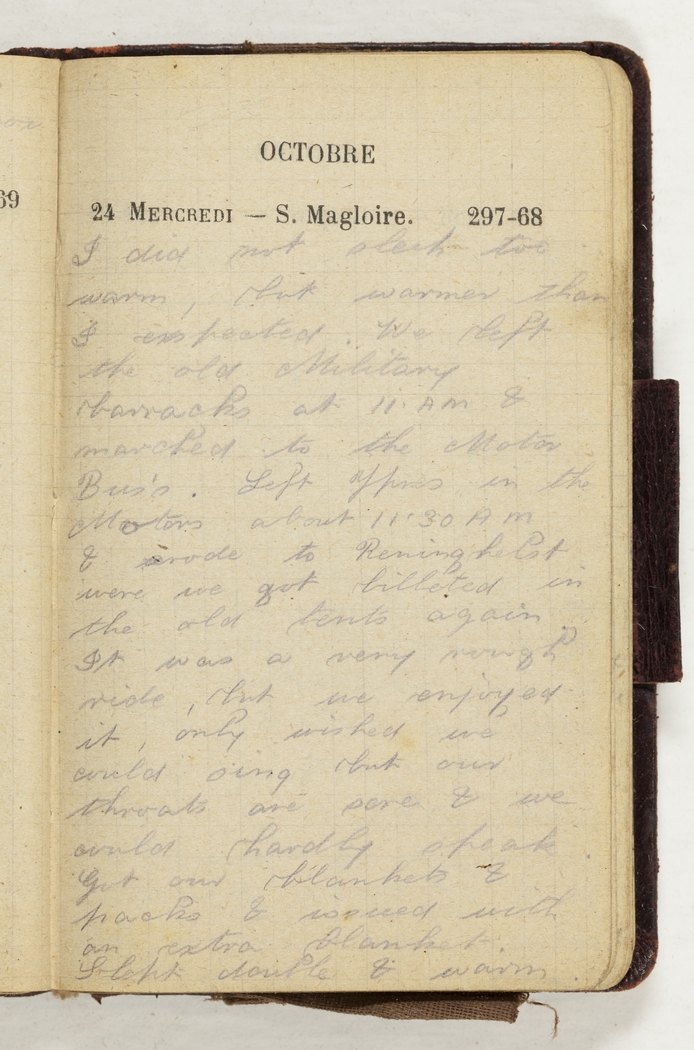 69
OCTOBRE
24 MERCREDI — S. Magloire. 297-68
I did not sleep too
warm, but warmer than
I expected. We left
the old Military
barracks at 11.AM &
marched to the Motor
Bus's. Left Ypres in the
Motors about 11.30 AM
& rode to Reninghelst
were we got billeted in
the old tents again.
It was a very rough
ride, but we enjoyed
it, only wished we
could sing but our
throats are sore & we
could hardly speak
Got our blankets &
packs & issued with
an extra blanket.
Slept double & warm.